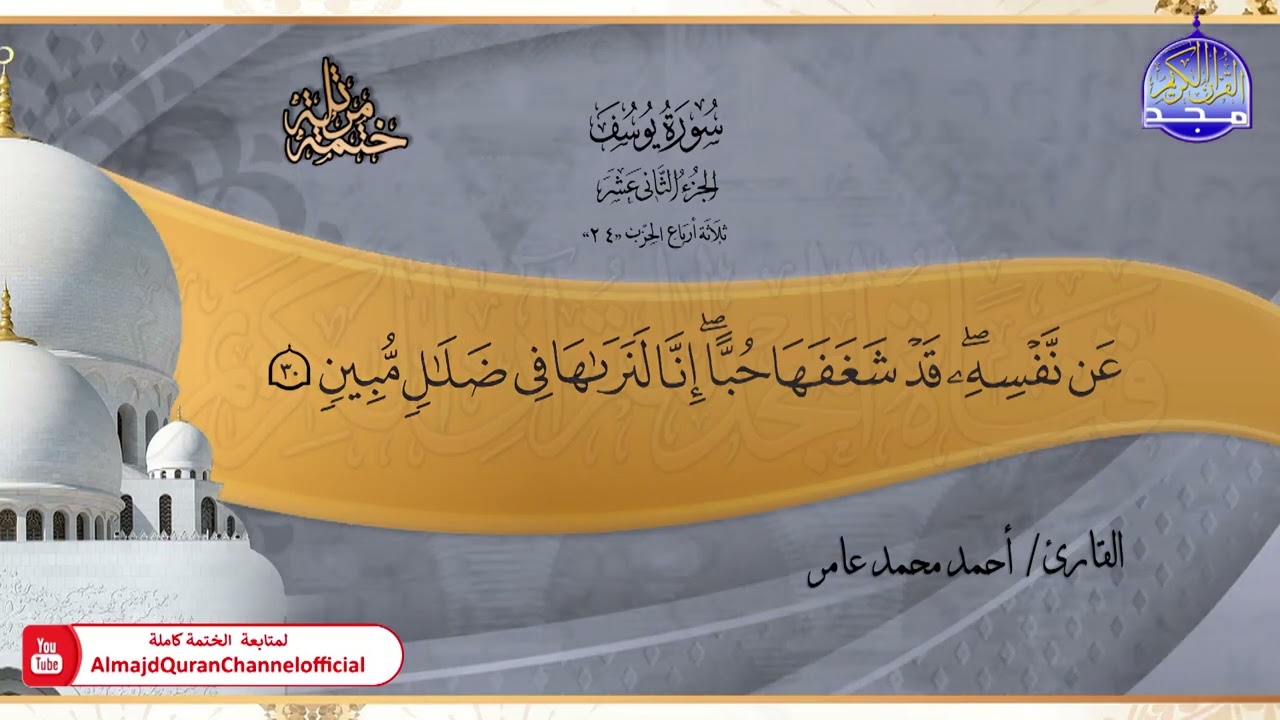 ختمة مرتلة
القرآن الكريم
مجد
سُورَةُ يُوسُفَ
الجُزْءُ الثَّانِى عَشَرَ
ثلاثة أرباع الحزب «٢٤»
عَن نَّفْسِهِۦۖ قَدْ شَغَفَهَا حُبًّاۖ إِنَّا لَنَرَىٰهَا فِى ضَلَـٰلٍ مُّبِينٍ ٣٠
القارئ/ أحمد محمد عامر
You Tube
لمتابعة الختمة كاملة
AlmajdQuranChannelofficial